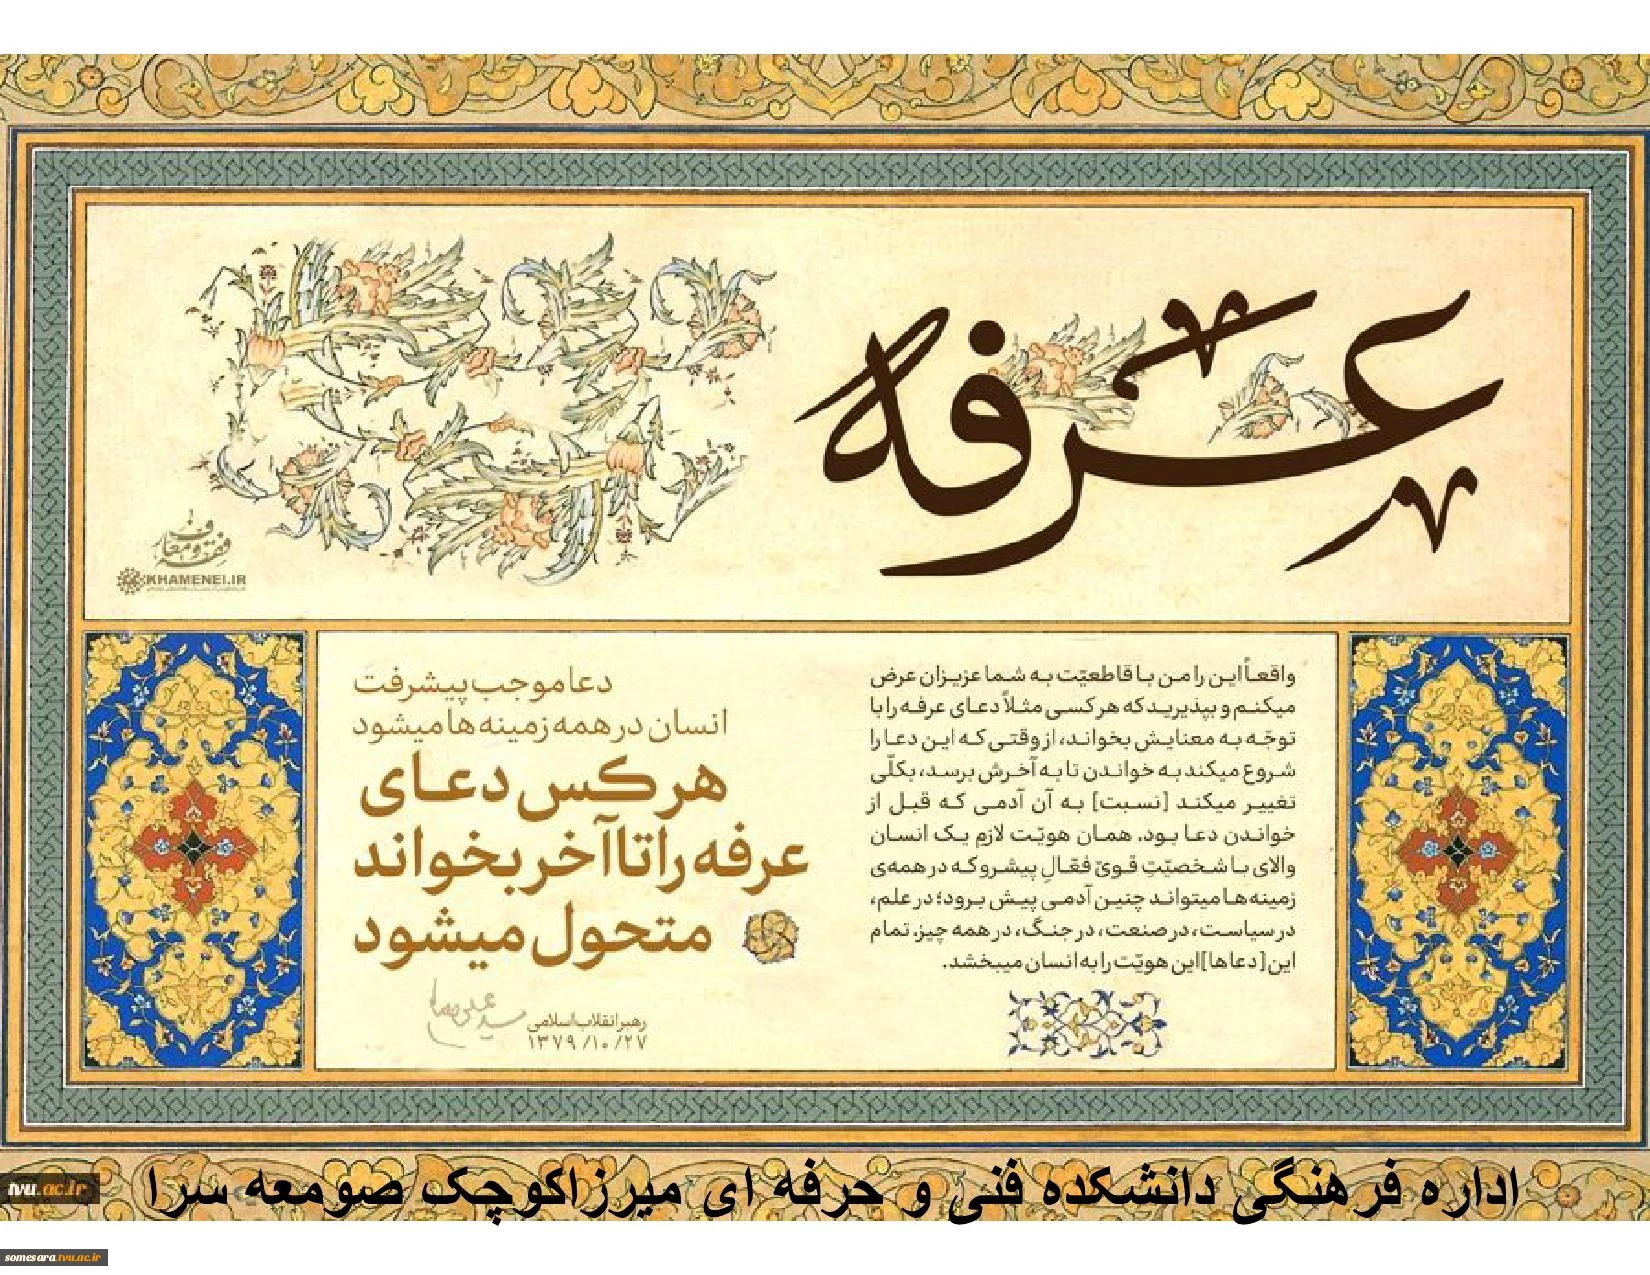 عرفه
فقه و معارف
KHAMENEI.IR
واقعاً این را من با قاطعیّت به شما عزیزان عرض
میکنم و بپذیرید که هر کسی مثلاً دعای عرفه را با
توجّه به معنایش بخواند، از وقتی که این دعا را
شروع میکند به خواندن تا به آخرش برسد، بکلّی
تغییر میکند [نسبت] به آن آدمی که قبل از
خواندن دعا بود. همان هویّت لازم یک انسان
والای با شخصیّتِ قویّ فعّالِ پیشرو که در همه‌ی
زمینه‌ها میتواند چنین آدمی پیش برود؛ در علم،
در سیاست، در صنعت، در جنگ، در همه چیز. تمام
این [دعاها] این هویّت را به انسان میبخشد.
دعا موجب پیشرفت
انسان در همه زمینه‌ها میشود
هر کس دعای
عرفه را تا آخر بخواند
متحول میشود
رهبر انقلاب اسلامی
۱۳۷۹/۱۰/۲۷
اداره فرهنگی دانشکده فنی و حرفه ای میرزاکوچک صومعه سرا
tvu.ac.ir
somesara.tvu.ac.ir